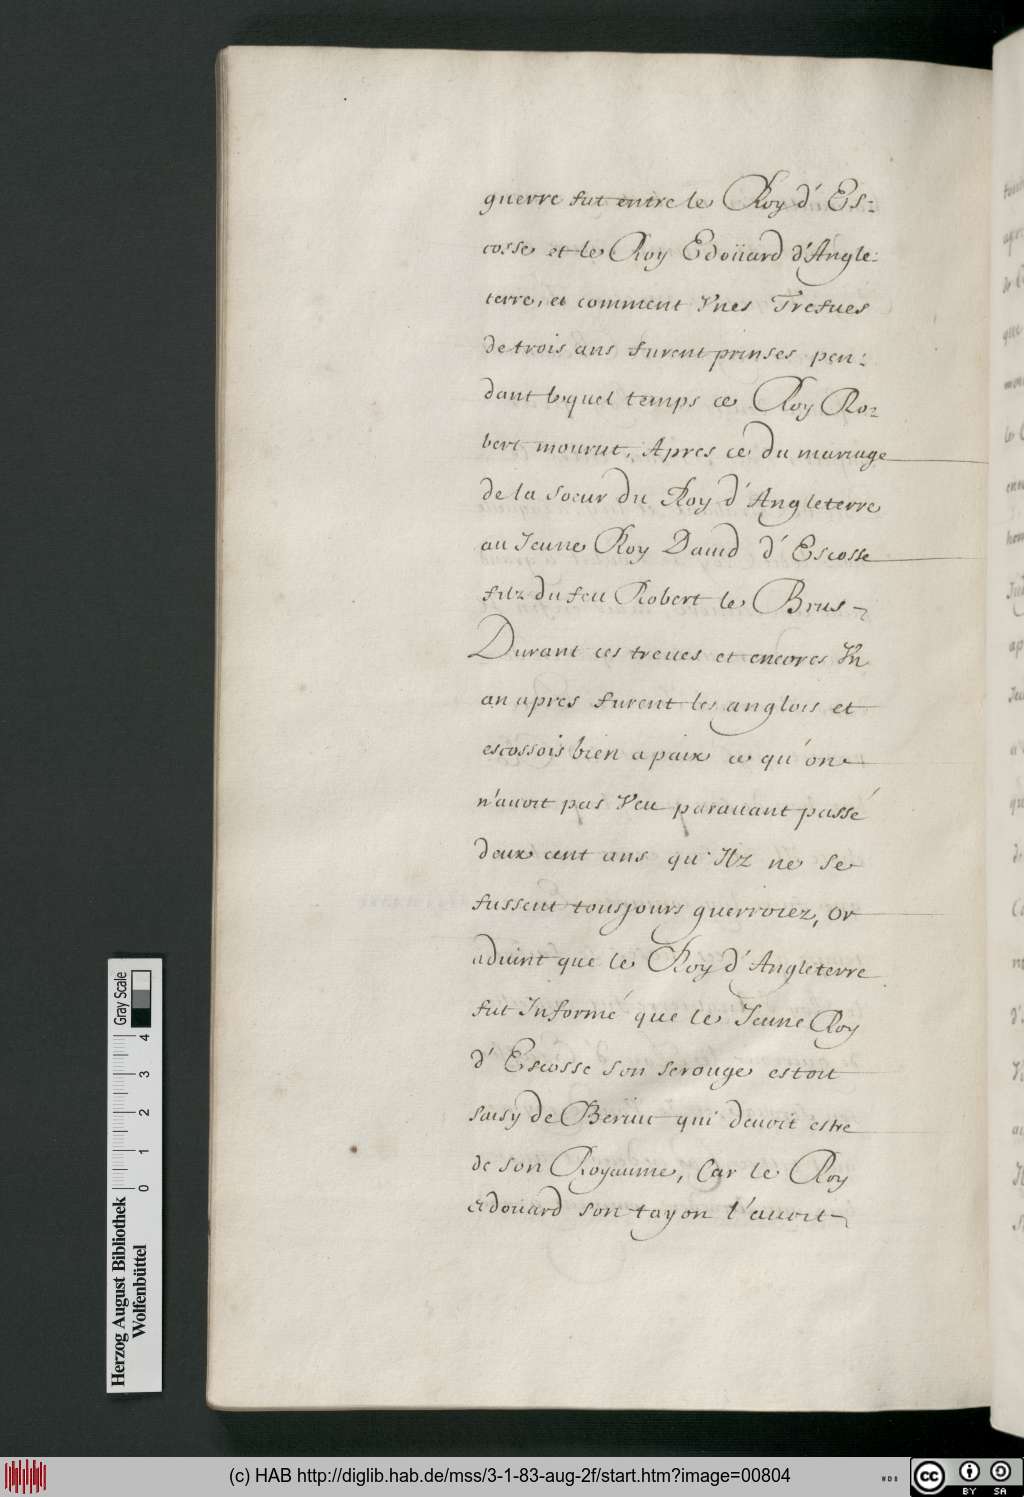 guerre fut entre le Roy d' Es-
cosse et le Roy Edoüard d'Angle-
terre, et comment Vnes Trefues
de trois ans furent prinses pen-
dant lequel temps ce Roy Ro-
bert mourut, Apres ce du mariage
de la soeur du Roy d'Angleterre
au Jeune Roy Dauid d' Escosse
filz du feu Robert le Brus
Durant ces treues et encores Vn
an apres furent les anglois et
escossois bien a paix ce qu'on
n'auoit pas Veu parauant passé
deux cent ans qu'Ilz ne se
fussent tousjours guerroiez, or
aduint que le Roy d'Angleterre
fut Informé que le Jeune Roy
d' Escosse son serouge estoit
saisy de Beruic qui deuoit estre
de son Royaume, Car le Roy
Edouard son tayon l'auoit
Gray Scale
4
3
2
1
0
Herzog August Bibliothek
Wolfenbüttel
(c) HAB http://diglib.hab.de/mss/3-1-83-aug-2f/start.htm?image=00804
WDB
cc
BY SA